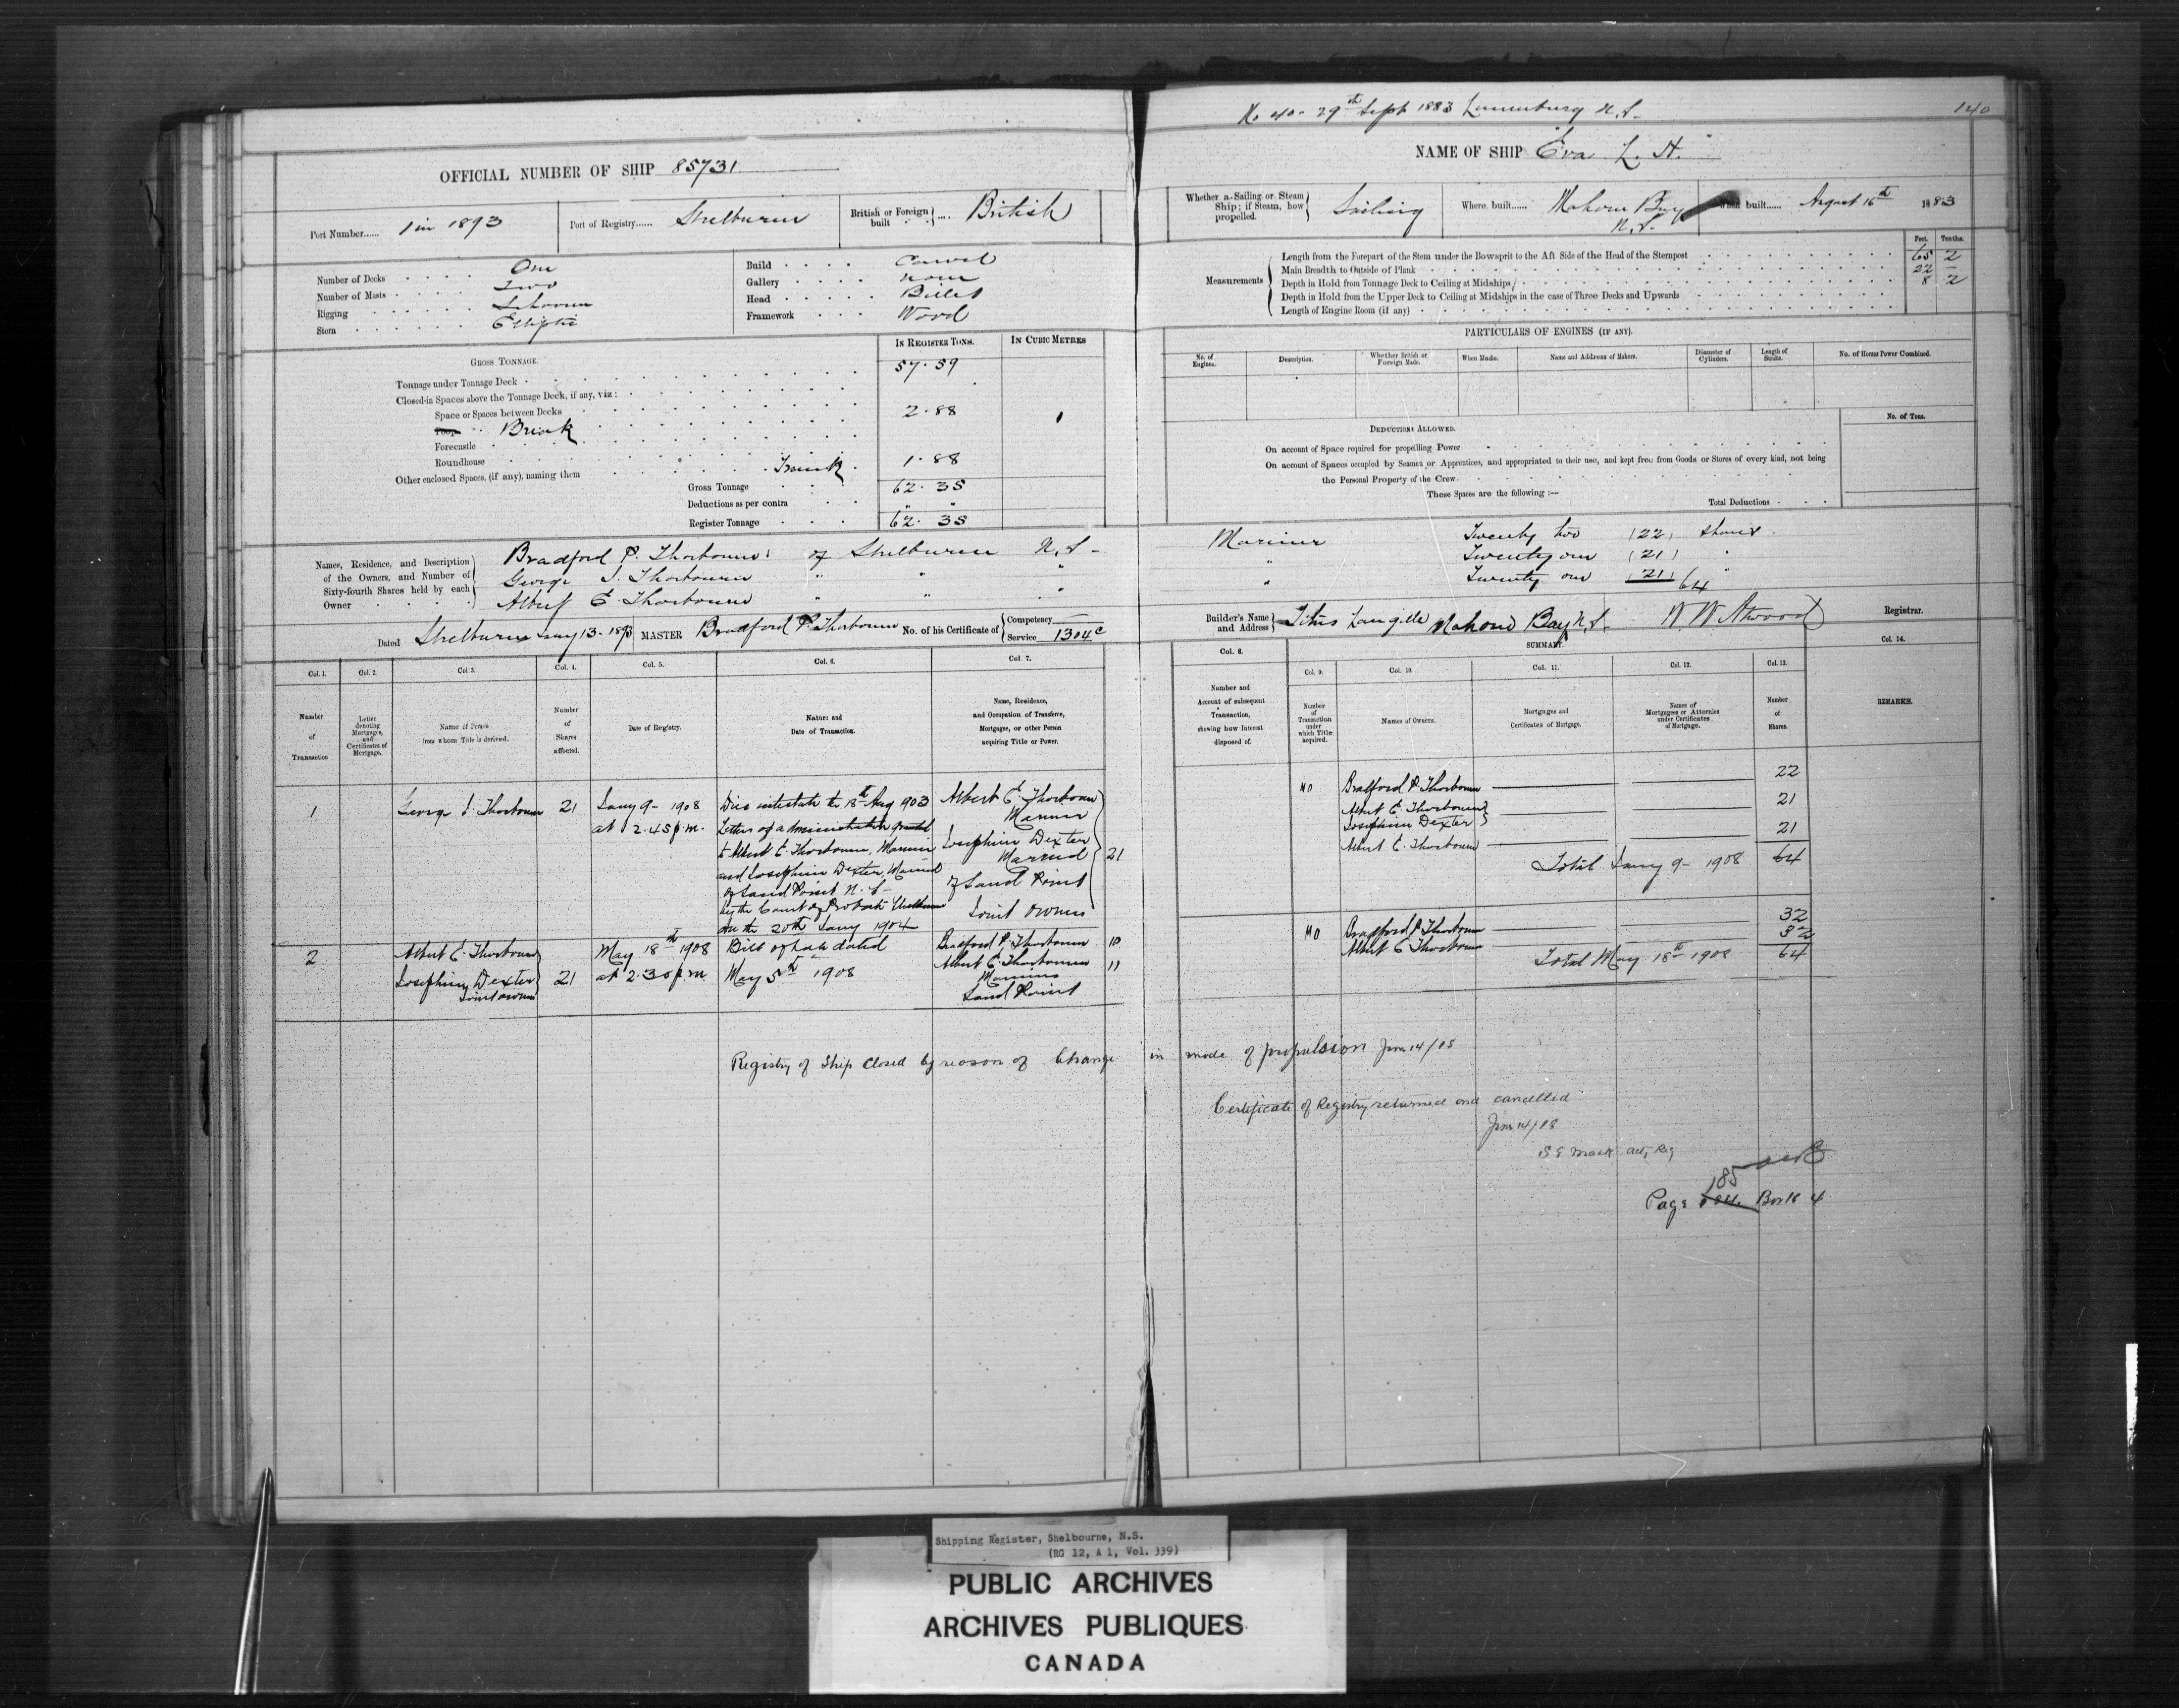 No 40 - 29th Sept 1883 Lunenburg N.S.
140
OFFICIAL NUMBER OF SHIP 85731
NAME OF SHIP "Eva L. H."
Port Number...... 1 in 1893
Port of Registry...... Shelburne
British or Foreign built .... British
Whether a Sailing or Steam Ship; if Steam, how propelled. Sailing
Where built...... Mahone Bay N.S.
When built...... August 16th 1883
Number of Decks One
Number of Masts Two
Rigging Schooner
Stern Elliptic
Build Carvel
Gallery None
Head Billet
Framework Wood
Feet. Tenths.
Measurements
Length from the Forepart of the Stem under the Bowsprit to the Aft Side of the Head of the Sternpost 65 2
Main Breadth to Outside of Plank 22 -
Depth in Hold from Tonnage Deck to Ceiling at Midships 8 2
Depth in Hold from the Upper Deck to Ceiling at Midships in the case of Three Decks and Upwards
Length of Engine Room (if any)
GROSS TONNAGE.
IN REGISTER TONS.
IN CUBIC METRES
Tonnage under Tonnage Deck 57.59
Closed-in Spaces above the Tonnage Deck, if any, viz:
Space or Spaces between Decks
Poop Break 2.88
Forecastle
Roundhouse
Other enclosed Spaces, (if any), naming them Trunk 1.88
Gross Tonnage 62.35
Deductions as per contra "
Register Tonnage 62.35
PARTICULARS OF ENGINES (IF ANY).
No. of Engines.
Description.
Whether British or Foreign Made.
When Made.
Name and Address of Makers.
Diameter of Cylinders.
Length of Stroke.
No. of Horses Power Combined.
DEDUCTIONS ALLOWED.
No. of Tons.
On account of Space required for propelling Power
On account of Spaces occupied by Seamen or Apprentices, and appropriated to their use, and kept free from Goods or Stores of every kind, not being
the Personal Property of the Crew.
These Spaces are the following :—
Total Deductions
Names, Residence, and Description of the Owners, and Number of Sixty-fourth Shares held by each Owner
Bradford P. Thorbourn of Shelburne N.S. Mariner Twenty two (22) shares
George J. Thorbourn " " " " Twenty one (21) "
Albert C. Thorbourn " " " " Twenty one (21) "
64
Dated Shelburne Jany 13 - 1893
MASTER Bradford P. Thorbourn
No. of his Certificate of Competency
Service 1304 c
Builder's Name and Address Titus Langille Mahone Bay N.S.
W W Atwood Registrar.
SUMMARY.
Col. 1. Col. 2. Col 3. Col. 4. Col. 5. Col. 6. Col 7. Col. 8. Col. 9. Col. 10. Col. 11. Col. 12. Col. 13. Col. 14.
Number of Transaction
Letter denoting Mortgages, and Certificates of Mortgage.
Name of Person from whom Title is derived.
Number of Shares affected.
Date of Registry.
Nature and Date of Transaction.
Name, Residence, and Occupation of Transferee, Mortgagee, or other Person acquiring Title or Power.
Number and Account of subsequent Transaction, showing how Interest disposed of.
Number of Transaction under which Title acquired.
Names of Owners.
Mortgages and Certificates of Mortgage.
Names of Mortgagees or Attornies under Certificates of Mortgage.
Number of Shares.
REMARKS.
1
George J. Thorbourn 21
Jany 9 - 1908
at 2.45 p.m.
Died intestate the 18th Aug 1903
Letters of administration granted
to Albert C. Thorbourn, Mariner
and Josephine Dexter, Married
of Sand Point N.S.
by the Court of Probate Shelburne
on the 20th Jany 1904
Albert C. Thorbourn
Mariner
Josephine Dexter
Married
of Sand Point
Joint Owners
21
Bradford P. Thorbourn 22
Albert C. Thorbourn
Josephine Dexter 21
Albert C. Thorbourn 21
Total Jany 9 - 1908 64
2
Albert C. Thorbourn
Josephine Dexter
Joint owners
21
May 18th 1908
at 2.30 p.m.
Bill of Sale dated
May 5th 1908
Bradford P. Thorbourn 10
Albert C. Thorbourn 11
Mariners
Sand Point
Bradford P. Thorbourn 32
Albert C Thorbourn 32
Total May 18th 1908 64
Registry of Ship Closed by reason of Change in mode of propulsion June 14/08
Certificate of Registry returned and cancelled
June 14/08
Act, Reg
185
Page Book 4
Shipping Register, Shelbourne, N.S.
(RG 12, A 1, Vol. 339)
PUBLIC ARCHIVES
ARCHIVES PUBLIQUES
CANADA